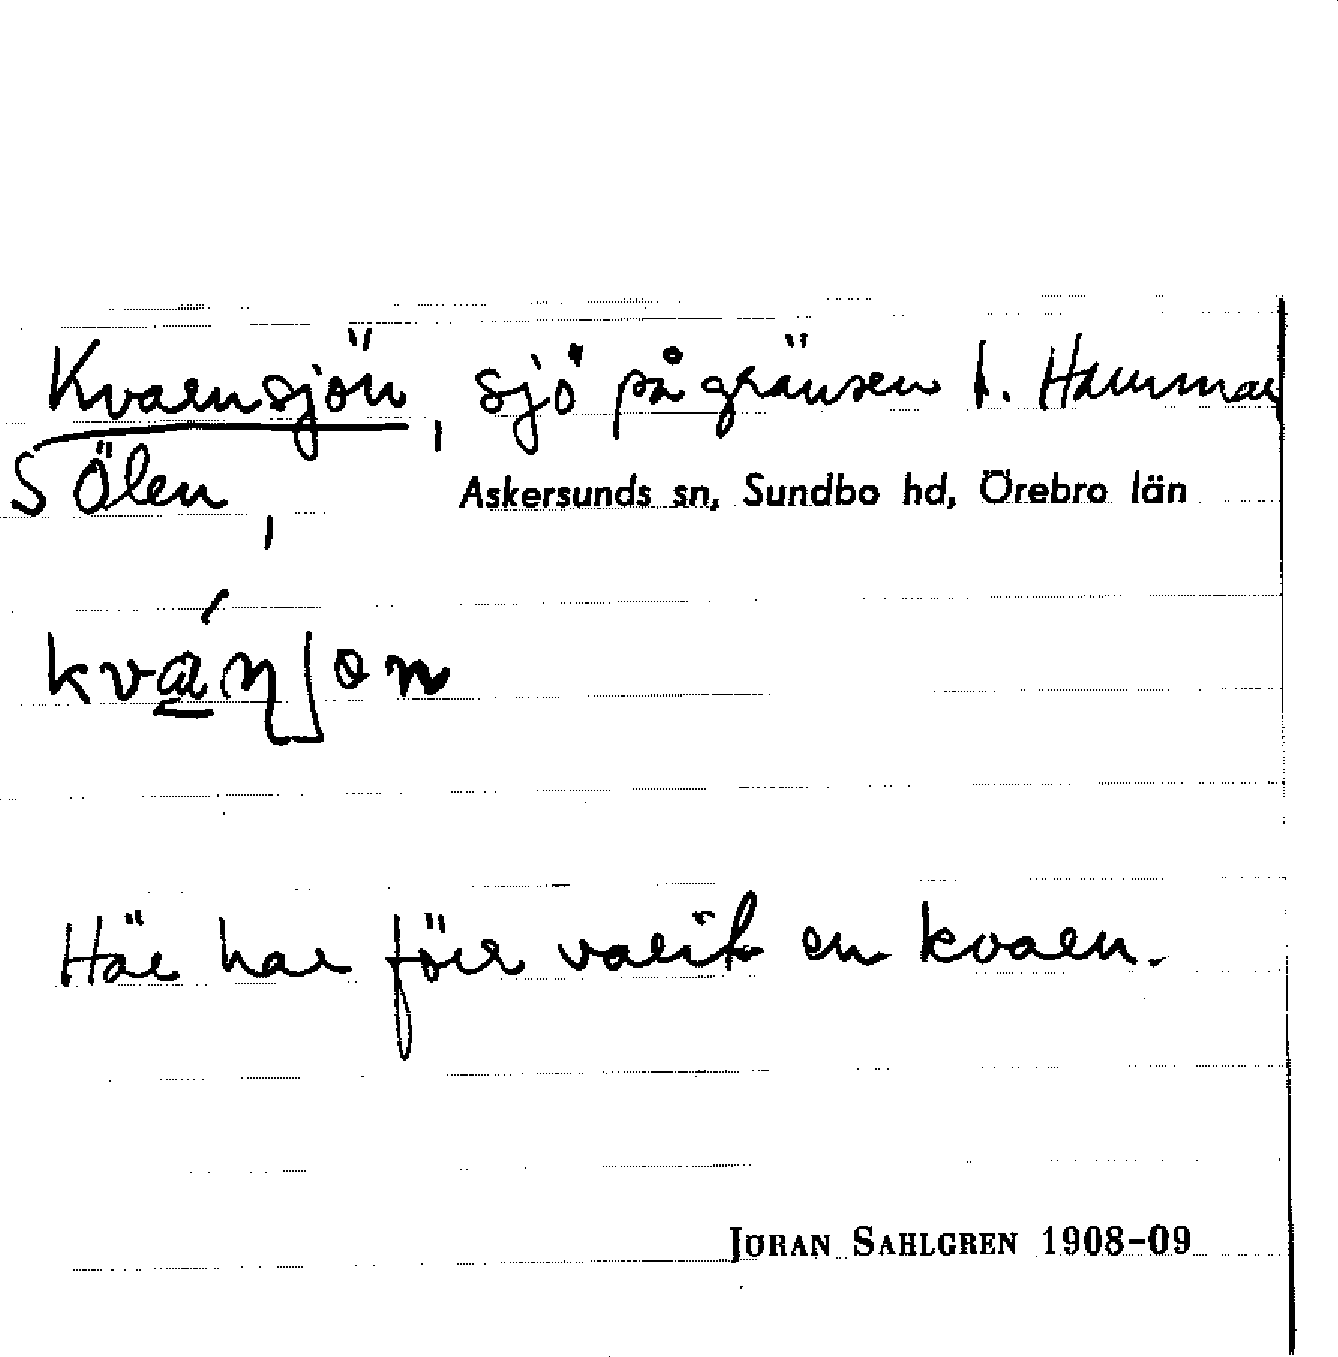 Kvarnsjön, sjö på gränsen t. Hammar
S Ölen,
Askersunds sn, Sundbo hd, Örebro län
Här har förr varit en kvarn.
JÖRAN SAHLGREN 1908-09